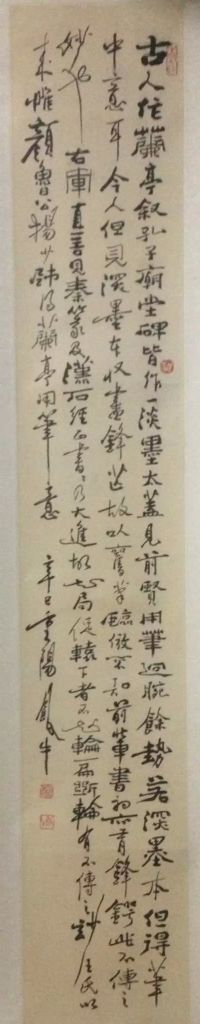 古人作蘭亭叙孔子廟堂碑皆作一淡墨太蓋見前賢用筆迴腕餘勢若深墨本但得筆
中意耳今人但見深墨本收書鋒芒故以舊筆臨倣不知前輩書初亦有鋒鍔此不傳之
妙也 右軍真善見秦篆及漢石經正書書乃大進故知局促轅下者不知輪扁斲輪有不傳之妙王氏以
來惟顏魯公楊少師得蘭亭用筆意 辛巳重陽 牛